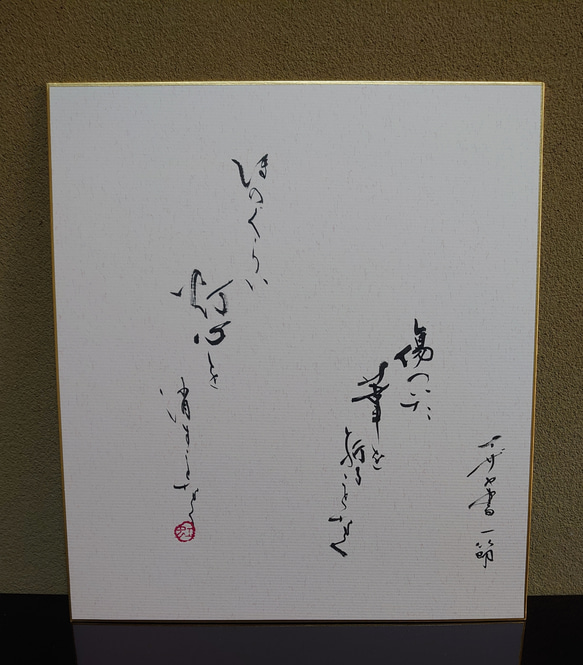 イザヤ書一節
傷ついた
葦を
折ることなく
ほのぐらい
灯心を
消すことなく